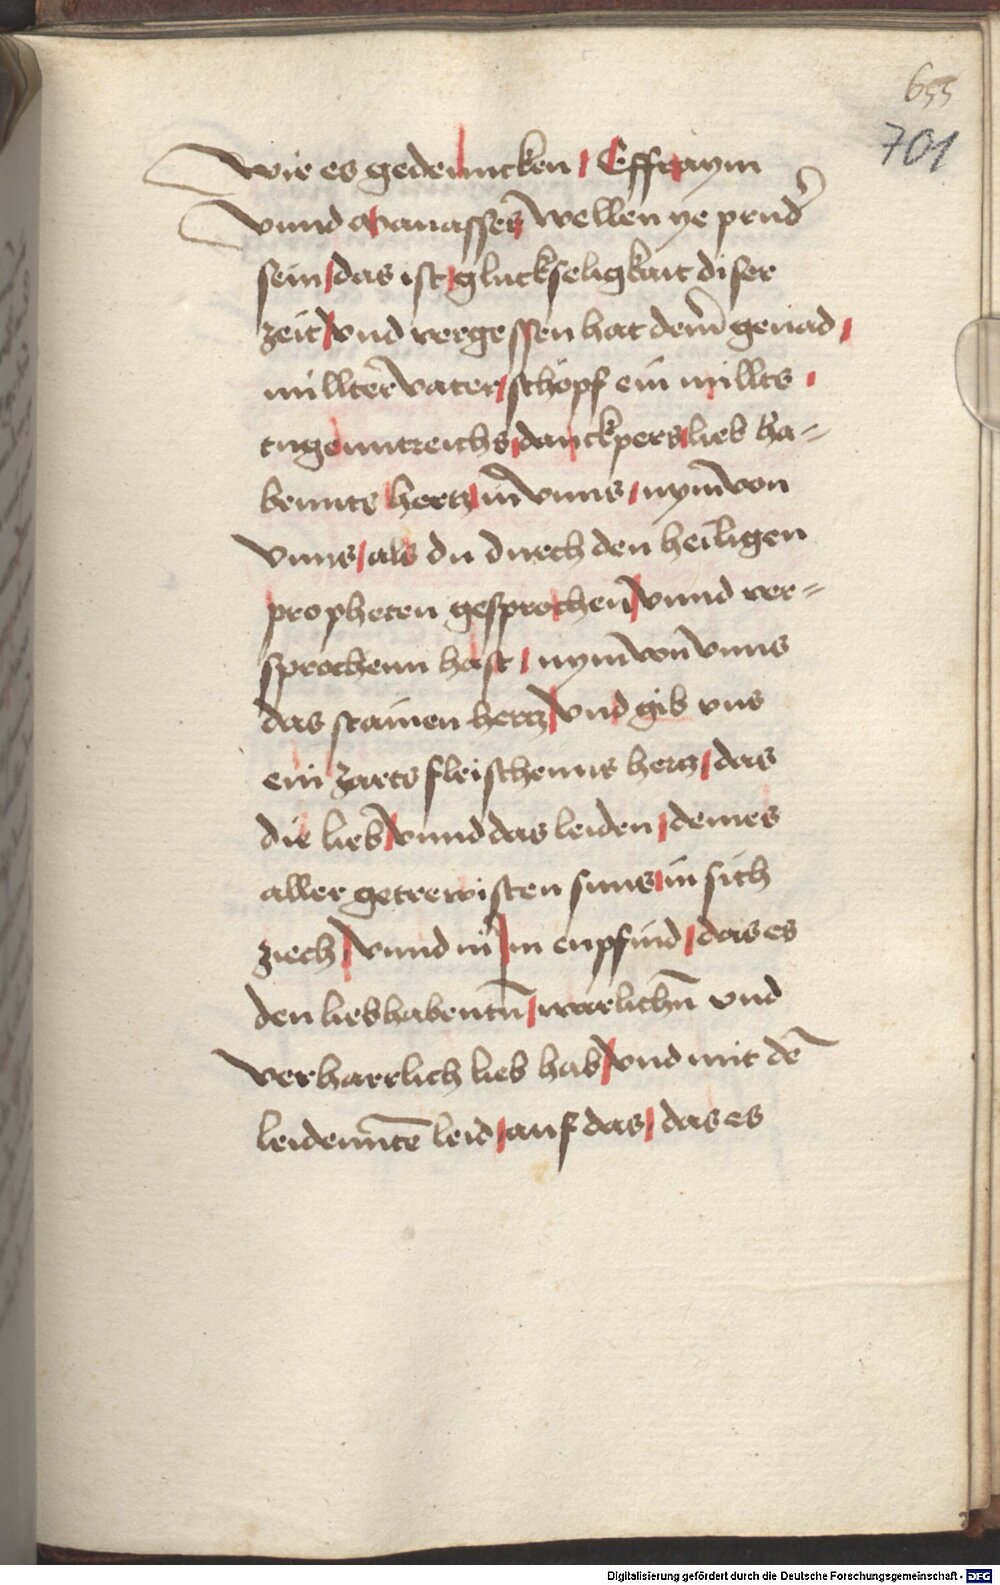 655
701
wir es gedenncken / Effraym
vnnd Manasses wellen ye prud̉
sein / das ist / gluckseligkait diser
zeit / vnd vergessen hat dem̄ genad /
millter̄ vater / schöpf ein millts /
tugenntreichs / danckpers / lieb ha-
bennts hertz / in vnns / nym von
vnns / als du durch den heiligen
propheten gesprochen / vnnd ver-
sprochenn hast / nym von vnns
das stainen hertz / vnd gib vns
ein zarts fleischenns hertz / das
die lieb / vnnd das leiden / deines
aller getrewisten suns / in sich
ziech / vnnd in̄ / in enpfind / das es
den liebhabentn̄ / warlichn̄ vnd
verharrlich lieb hab / vnd mit dē
leidenntē leid / auf das / das es
Digitalisierung gefördert durch die Deutsche Forschungsgemeinschaft - DFG